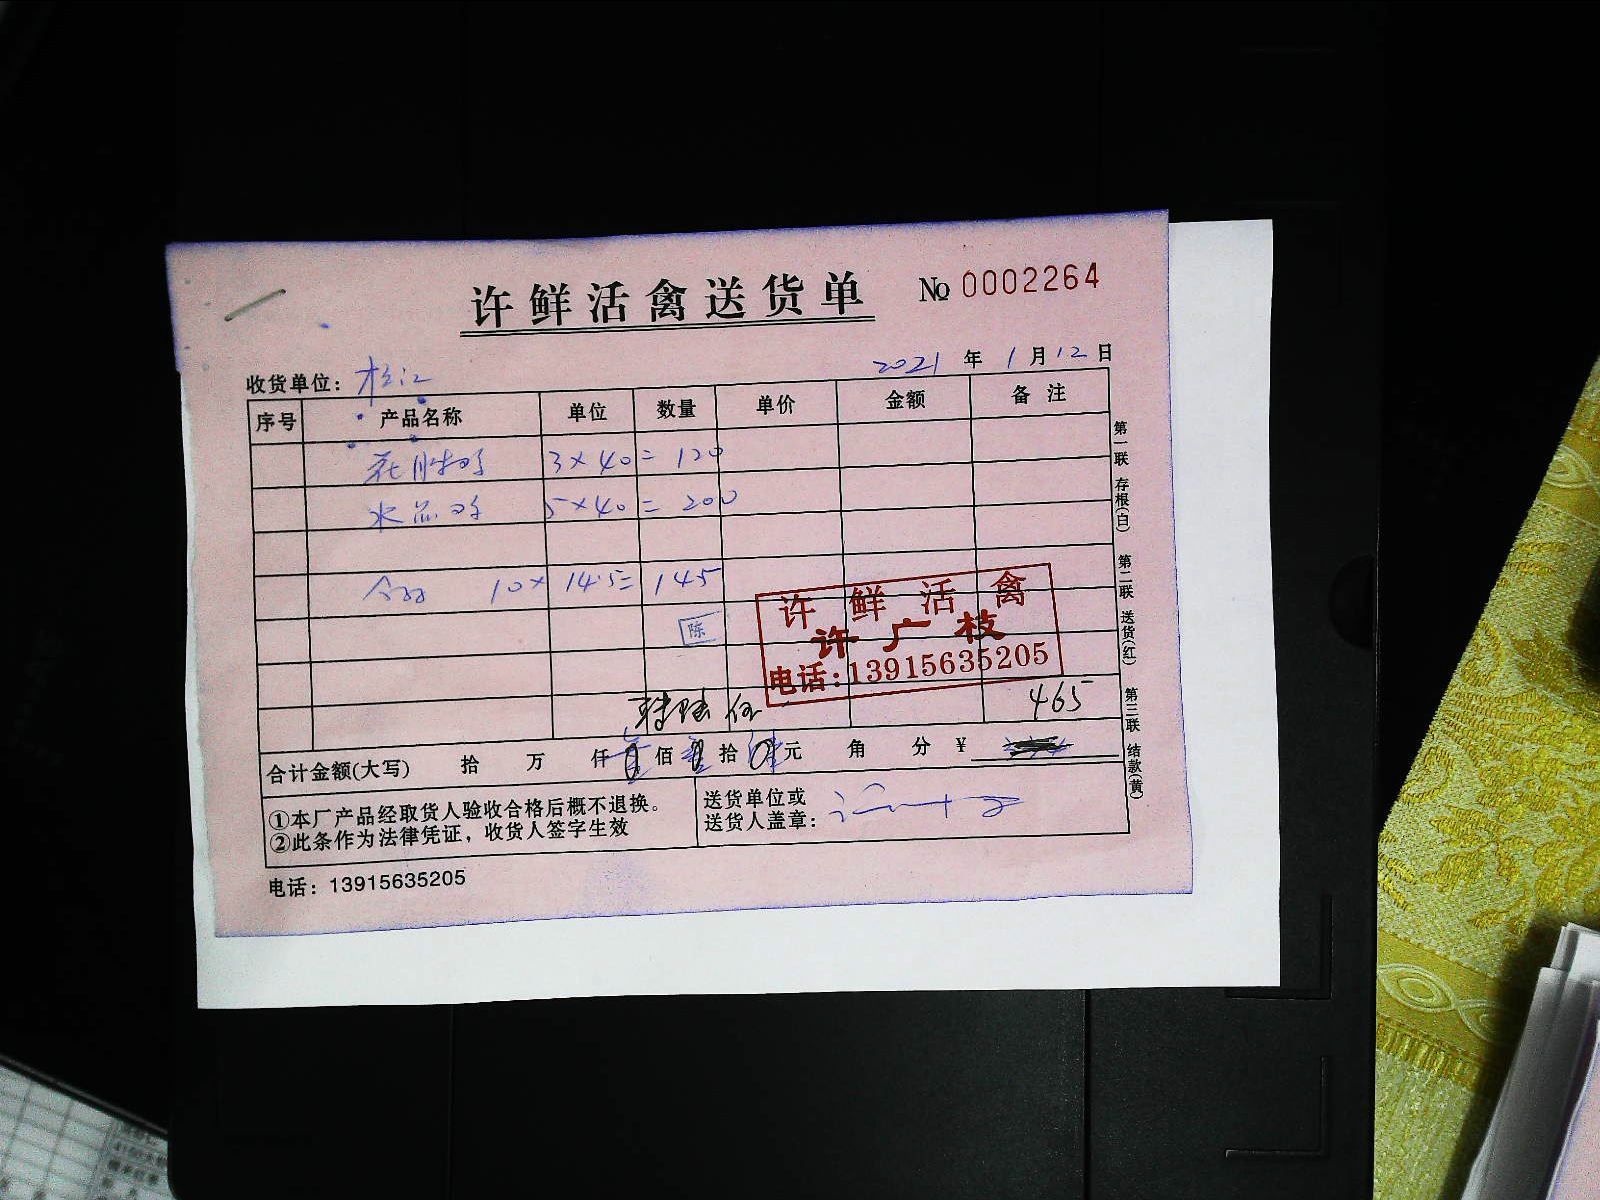 许鲜活禽送货单
№ 0002264
收货单位： 松江
2021 年 1 月 12 日
序号 产品名称 单位 数量 单价 金额 备注
3×40= 120
5×40= 200
10× 14.5= 145
陈
许鲜活禽
许广枝
电话:13915635205
465
合计金额(大写) 拾 万 仟 佰 拾 元 角 分 ￥
①本厂产品经取货人验收合格后概不退换。
②此条作为法律凭证，收货人签字生效
送货单位或
送货人盖章：
电话：13915635205
第一联 存根(白) 第二联 送货(红) 第三联 结款(黄)